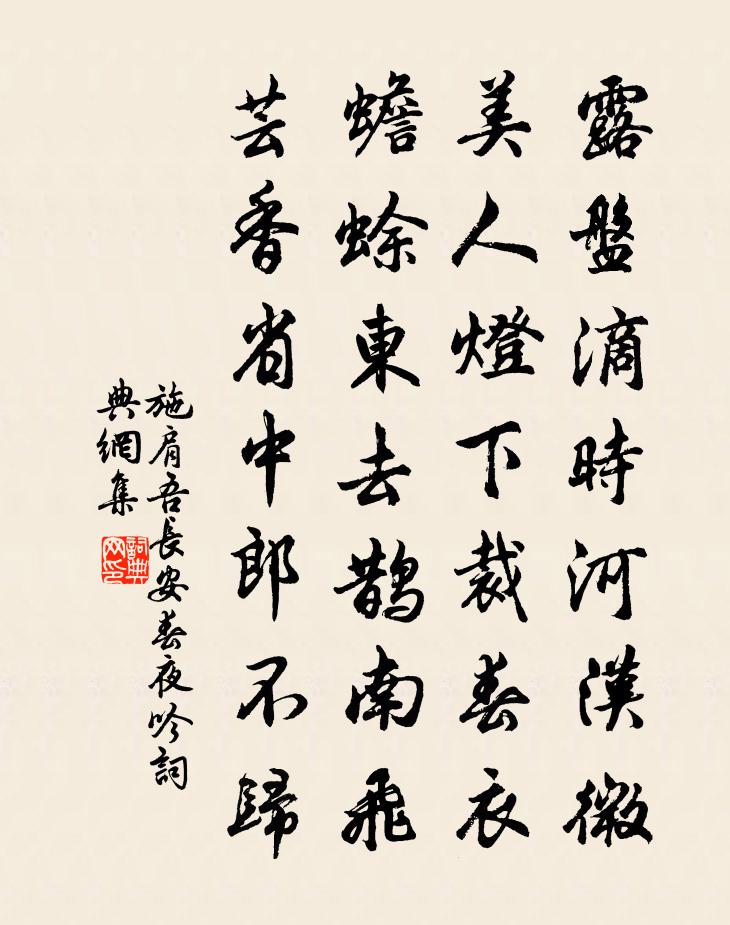 露盤滴時河漢微
美人燈下裁春衣
蟾蜍東去鵲南飛
芸香省中郎不歸
施肩吾長安春夜吟詞
典網集
詞典網印